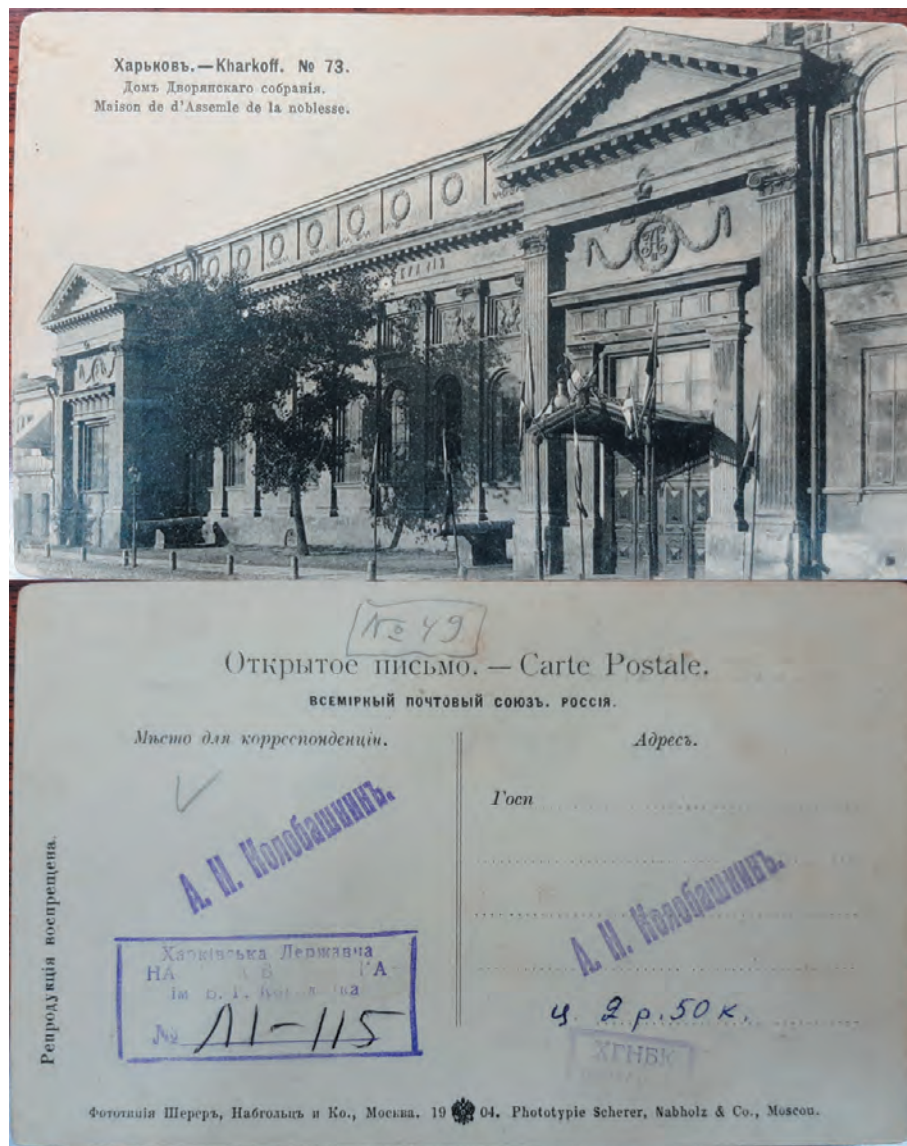 Харьковъ.—Kharkoff. № 73.
Домъ Дворянскаго собранія.
Maison de d'Assemle de la noblesse.
№ 49
Открытое письмо. — Carte Postale.
ВСЕМІРНЫЙ ПОЧТОВЫЙ СОЮЗЪ. РОССІЯ.
Мѣсто для корреспонденціи.
Адресъ.
Госп
А. Н. Колобашкинъ.
А. Н. Колобашкинъ.
Репродукція воспрещена.
Харківська Державна
НА
ім
№ ЛІ-115
ц. 2 р. 50 к.
ХГНБК
Фототипія Шереръ, Набгольцъ и Ко., Москва. 19 04. Phototypie Scherer, Nabholz & Co., Moscou.